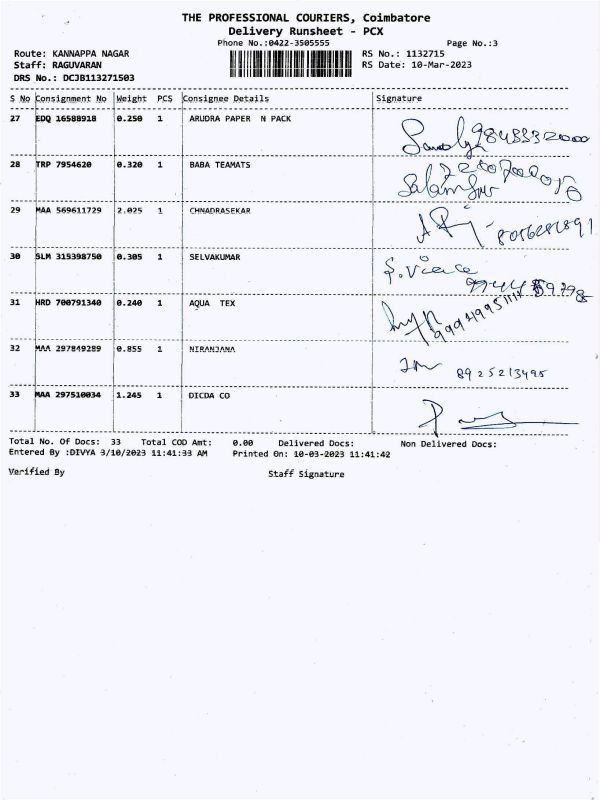 THE PROFESSIONAL COURIERS, Coimbatore
Delivery Runsheet - PCX
Phone No.:0422-3505555 Page No.:3
Route: KANNAPPA NAGAR RS No.: 1132715
Staff: RAGUVARAN RS Date: 10-Mar-2023
DRS No.: DCJB113271503
S No Consignment No Weight PCS Consignee Details Signature
27 EDQ 16588918 0.250 1 ARUDRA PAPER N PACK
28 TRP 7954620 0.320 1 BABA TEAMATS
29 MAA 569611729 2.025 1 CHNADRASEKAR
30 SLM 315398750 0.305 1 SELVAKUMAR
31 HRD 700791340 0.240 1 AQUA TEX
32 MAA 297849289 0.855 1 NIRANJANA
8925213495
33 MAA 297510034 1.245 1 DICDA CO
Total No. Of Docs: 33 Total COD Amt: 0.00 Delivered Docs: Non Delivered Docs:
Entered By :DIVYA 3/10/2023 11:41:33 AM Printed On: 10-03-2023 11:41:42
Verified By Staff Signature